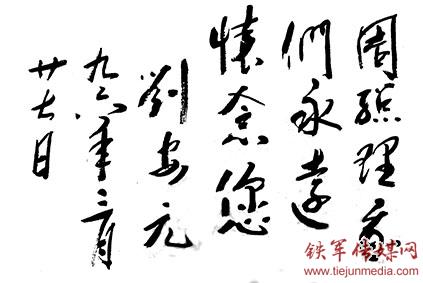 周總理我
們永遠
懷念您
劉安元
九六年三月
廿七日
铁军传媒网
www.tiejunmedia.com